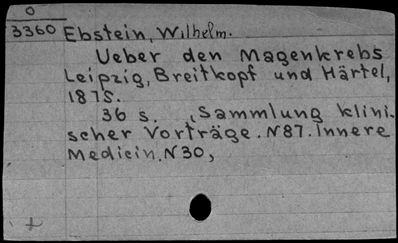 O
3360 Ebstein, Wilhelm.
Ueber den Magenkrebs
Leipzig, Breitkopf und Härtel,
1875.
36 s. (Sammlung klini-
scher Vorträge. N87. Innere
Medicin. N30,